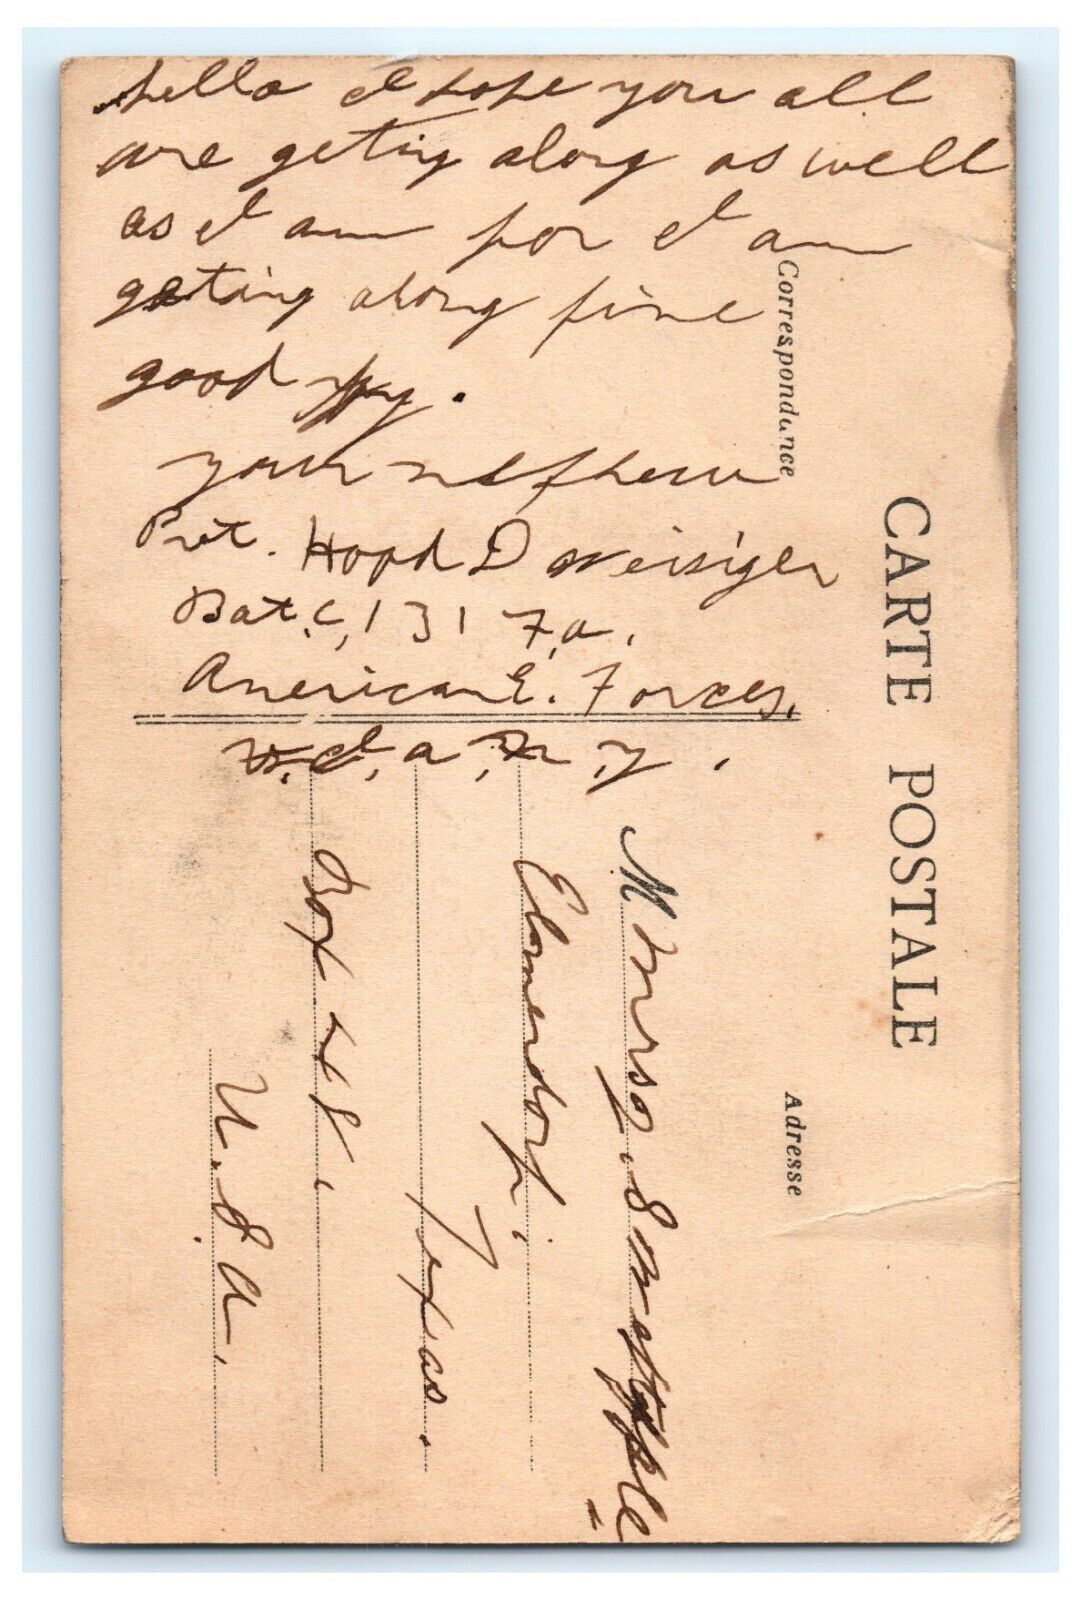 hello I hope you all
are geting along as well
as I am for I am
geting along fine
good by.
your nefhew
Pvt. Hood D Weisiger
Bat. C, 131 F,a,
American E. Forces,
a, N, y.
Correspondance
CARTE POSTALE
Adresse
Elmendorf,
Texas.
Box
U.S.A.